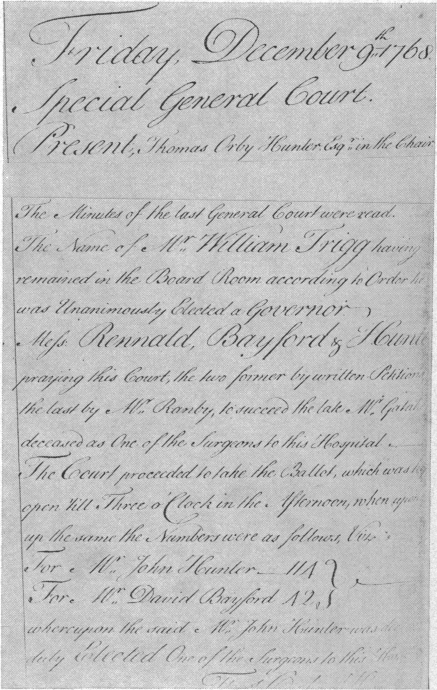 Friday, December 9th 1768.
Special General Court.
Present, Thomas Orby Hunter Esqr. in the Chair
The Minutes of the last General Court were read.
The Name of Mr. William Trigg having
remained in the Board Room according to Order he
was Unanimously Elected a Governor
Mess. Rennald, Bayford & Hunte
praying this Court, the two former by written Petition
the last by Mr. Ranby, to succeed the late Mr.
deceased as One of the Surgeons to this Hospital
The Court proceeded to take the Ballot, which was
open till Three o'Clock in the Afternoon, when
up the same the Numbers were as follows, Viz.
For Mr. John Hunter 114
For Mr. David Bayford 42
whereupon the said Mr. John Hunter was
duly Elected One of the Surgeons to this